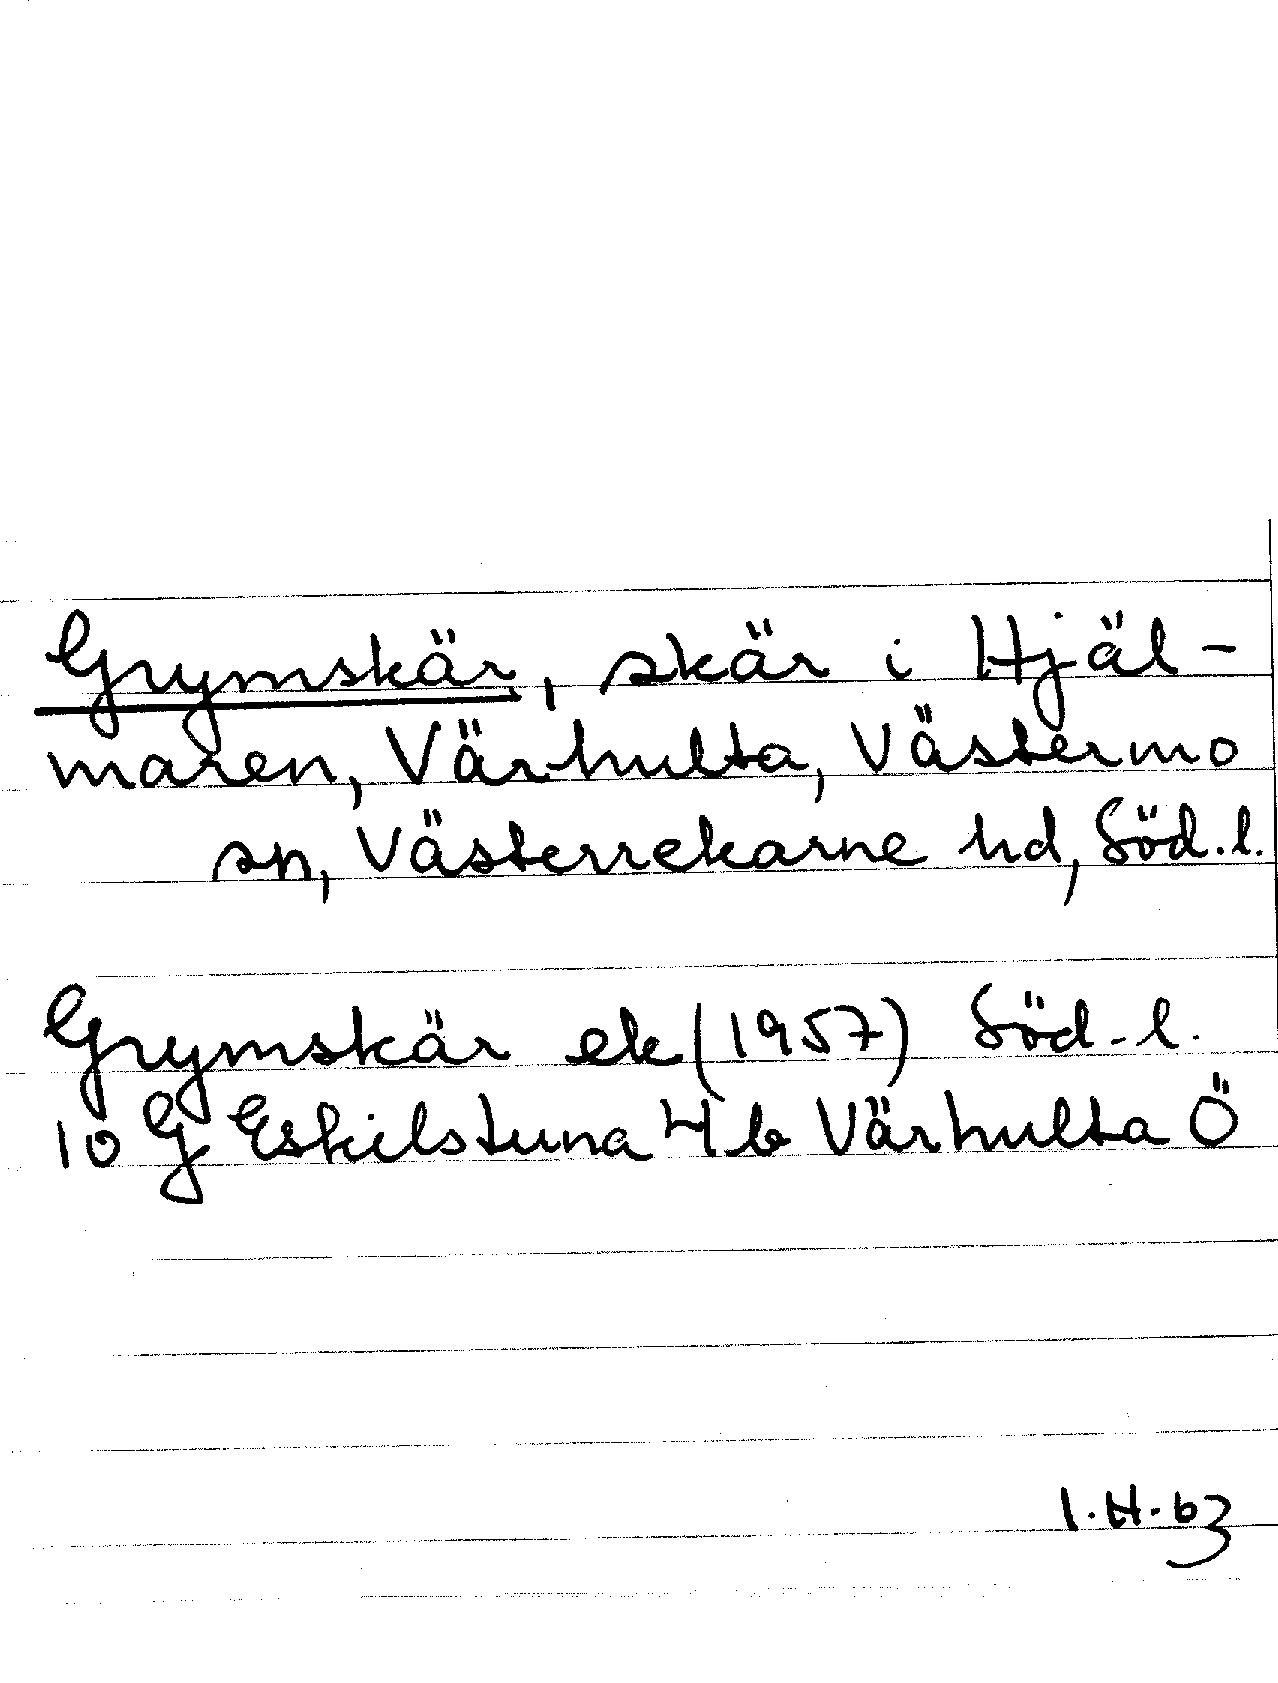 Grymskär, skär i Hjäl-
maren, Värhulta, Västermo
sn, Västerrekarne hd, Söd.l.
Grymskär ek (1957) Söd.l.
10 G Eskilstuna 4 b Värhulta Ö
I.H.63